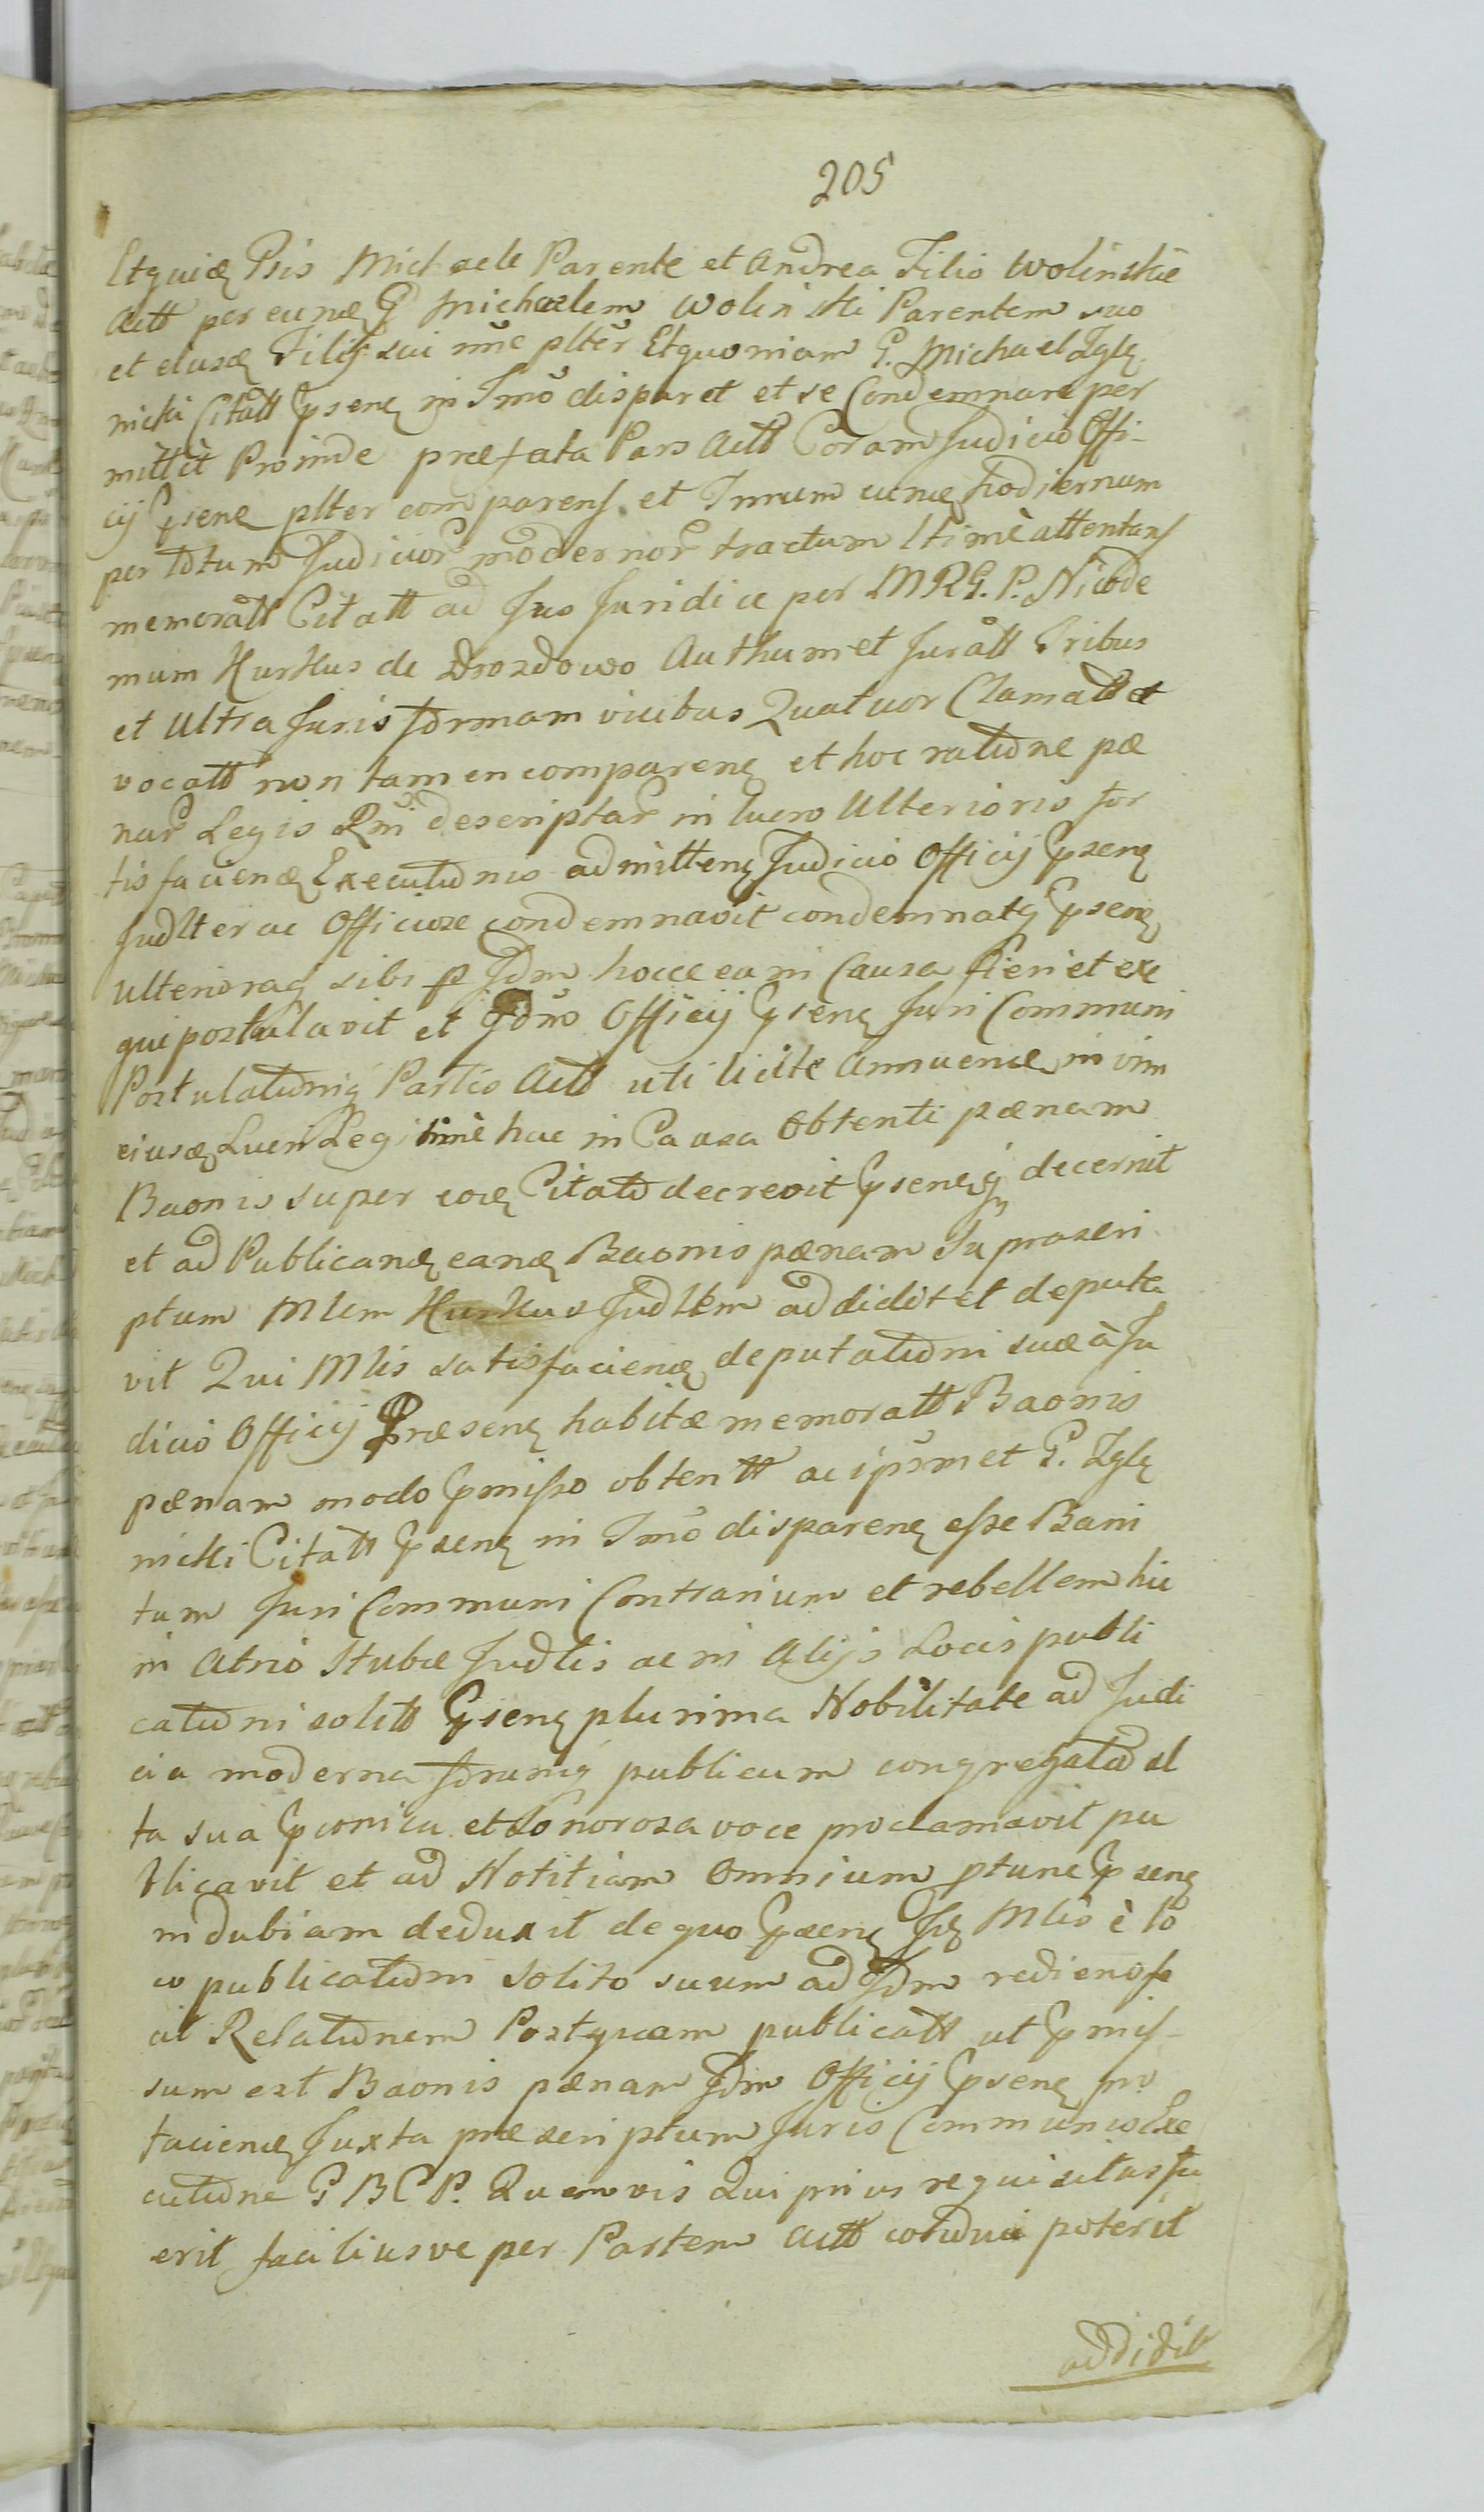 205
Etquidę Psis Michaele Parente et Andrea Filio Wolinskie
Actt per eundę G Michaelem Wolinski Parentem suo
et eiusdę Filij sui nne plter Etquoniam G. Michael Iglę
nicki Citatt Gpsenę in Tmo disparet et se Condemnare per
mittit Proinde præfata Pars Actt Coram Judicio Offi-
cij Gpsenę plter comparens et Tmum eundę hodiernum
per totum Judicior modernor tractum ltime attentans
memoratt Citatt ad Jus Juridice per MRG. P. Nicode
mum Kurkus de Drozdowo Authum et Juratt Tribus
et Ultra Juris formam vicibus Quatuor Clamatt et
vocatt non tamen comparenę et hoc ratione pæ
nar Legis Rni descriptar in lucro Ulterioris for
tis faciendę Executionis admittenę Judicio Officij Gpsenę
Judlter ac Officiose condemnavit condemnatq Gpsenę
Ulterioraq sibi p Jdm hocce ea in Causa fieri et exe
qui postulavit et Jdm Officij Gpsenę Juri Communi
Postulationiq Partis Actt uti licite Annuendę in vim
eiusdę Lucri Legitimè hac in Causa Obtenti pænam
Baonis super eodę Citato decrevit Gpsenęq decernit
et ad Publicandę eandę Baonis pænam Suprascri
ptum Mlem Kurkus Judlem addidit et deputa
vit Qui Mlis satisfaciendę deputationi suæ à Ju
dicio Officij Præsenę habitæ memoratt Baonis
pænam modo Gpmisso obtentt ac ipsmet G. Iglę
nicki Citatt Gpsenę in Tmo disparenę esse Bani
tum Juri Communi Contrarium et rebellem hic
in Atrio Stubæ Judlis ac in Alijs Locis publi
cationi solitt Gpsenę plurima Nobilitate ad Judi
cia moderna forumq publicum congregata al
ta sua Gpconica et Sonorosa voce proclamavit pu
blicavit et ad Notitiam Omnium ptunc Gpsenę
indubiam deduxit de quo Gpsenę Jdę Mlis è lo
co publicationi solito suum ad Jdm rediens fe
cit Relationem Postquam publicatt ut Gpmis-
sum est Baonis pænam Jdm Officij Gpsenę pro
faciendę Juxta præscriptum Juris Communis Exe
cutione G B C P. Quemvis Qui prius requisitus fu
erit faciliusve per Partem Actt cotidui poterit
addidit